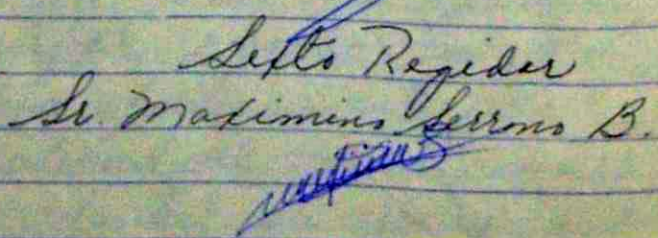 Sexto Regidor
Sr. Maximino Serrano B.